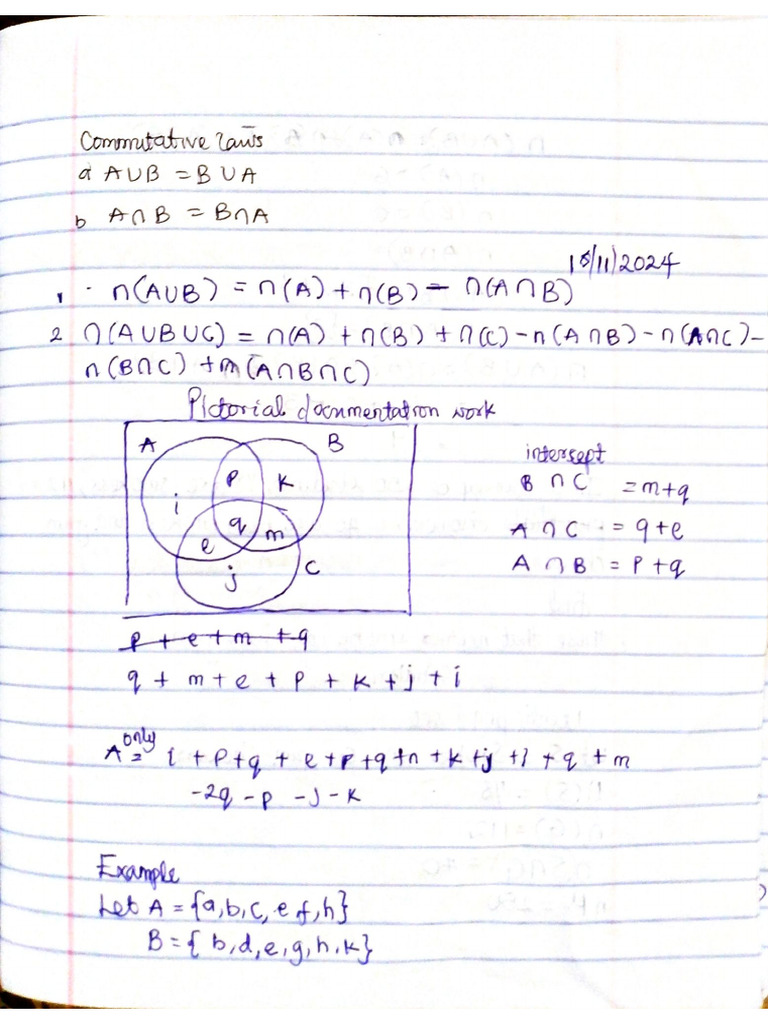 Commutative laws
a A∪B = B∪A
b A∩B = B∩A
18/11/2024
1. n(A∪B) = n(A) + n(B) - n(A∩B)
2 n(A∪B∪C) = n(A) + n(B) + n(C) - n(A∩B) - n(A∩C) -
n(B∩C) + n(A∩B∩C)
Pictorial documentation work
A B
P k
i
q m
e
j C
intersept
B ∩ C = m+q
A ∩ C = q+e
A ∩ B = P+q
p + e + m + q
q + m + e + P + k + j + i
A only = i + P + q + e + p + q + n + k + j + i + q + m
-2q - p - j - k
Example
Let A = {a, b, c, e f, h}
B = { b, d, e, g, h, k}